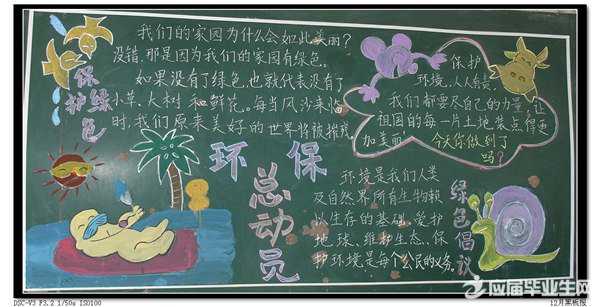 我们的家园为什么会如此美丽?
没错,那是因为我们的家园有绿色。
如果没有了绿色,也就代表没有了
小草、大树和鲜花。每当风沙来临
时,我们原来美好的世界将被摧残。
保护绿色
环保
总动员
保护
环境,人人有责,
我们都要尽自己的力量,让
祖国的每一片土地装点得更
加美丽!
今天你做到了
吗?
环境是我们人类
及自然界所有生物赖
以生存的基础、爱护
地球、维护生态、保
护环境是每个公民的义务。
绿色倡议
应届毕业生网
DSC-V3 F3.2 1/50s ISO100
12月黑板报